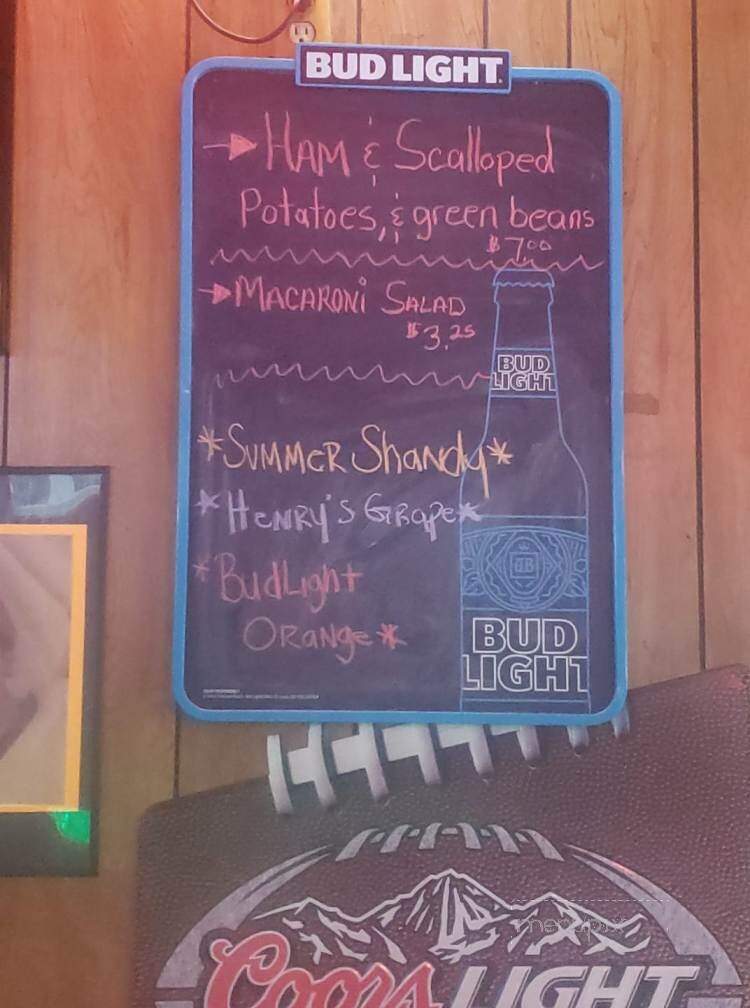 BUD LIGHT
HAM & Scalloped
Potatoes, & green beans
$7.00
MACARONi SALAD
$3.25
BUD
LIGHT
*SUMMER Shandy*
*HENRY'S GRAPE*
*BudLight
ORANGE*
BUD
LIGHT
menupix
Coors LIGHT